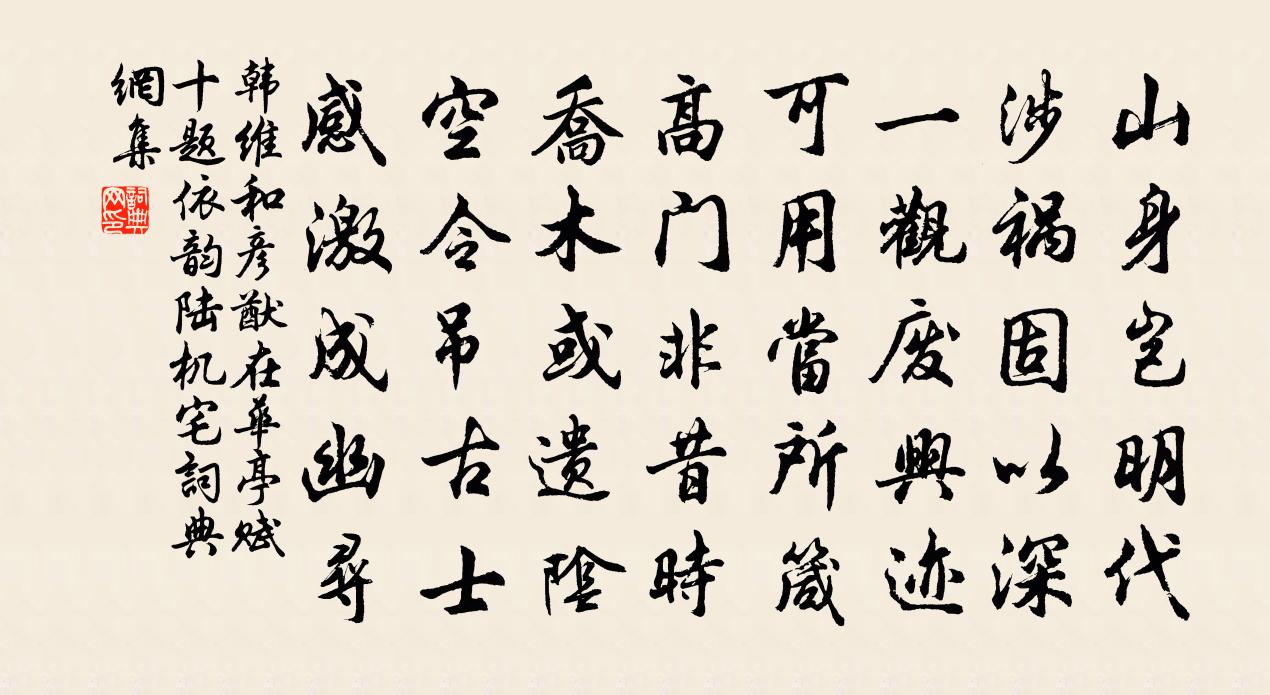 山身岂明代
涉祸固以深
一觀废興迹
可用當所箴
高门非昔時
喬木或遗陰
空令吊古士
感激成幽尋
韩维和彦猷在華亭赋
十题依韵陆机宅詞典
網集
詞典网印